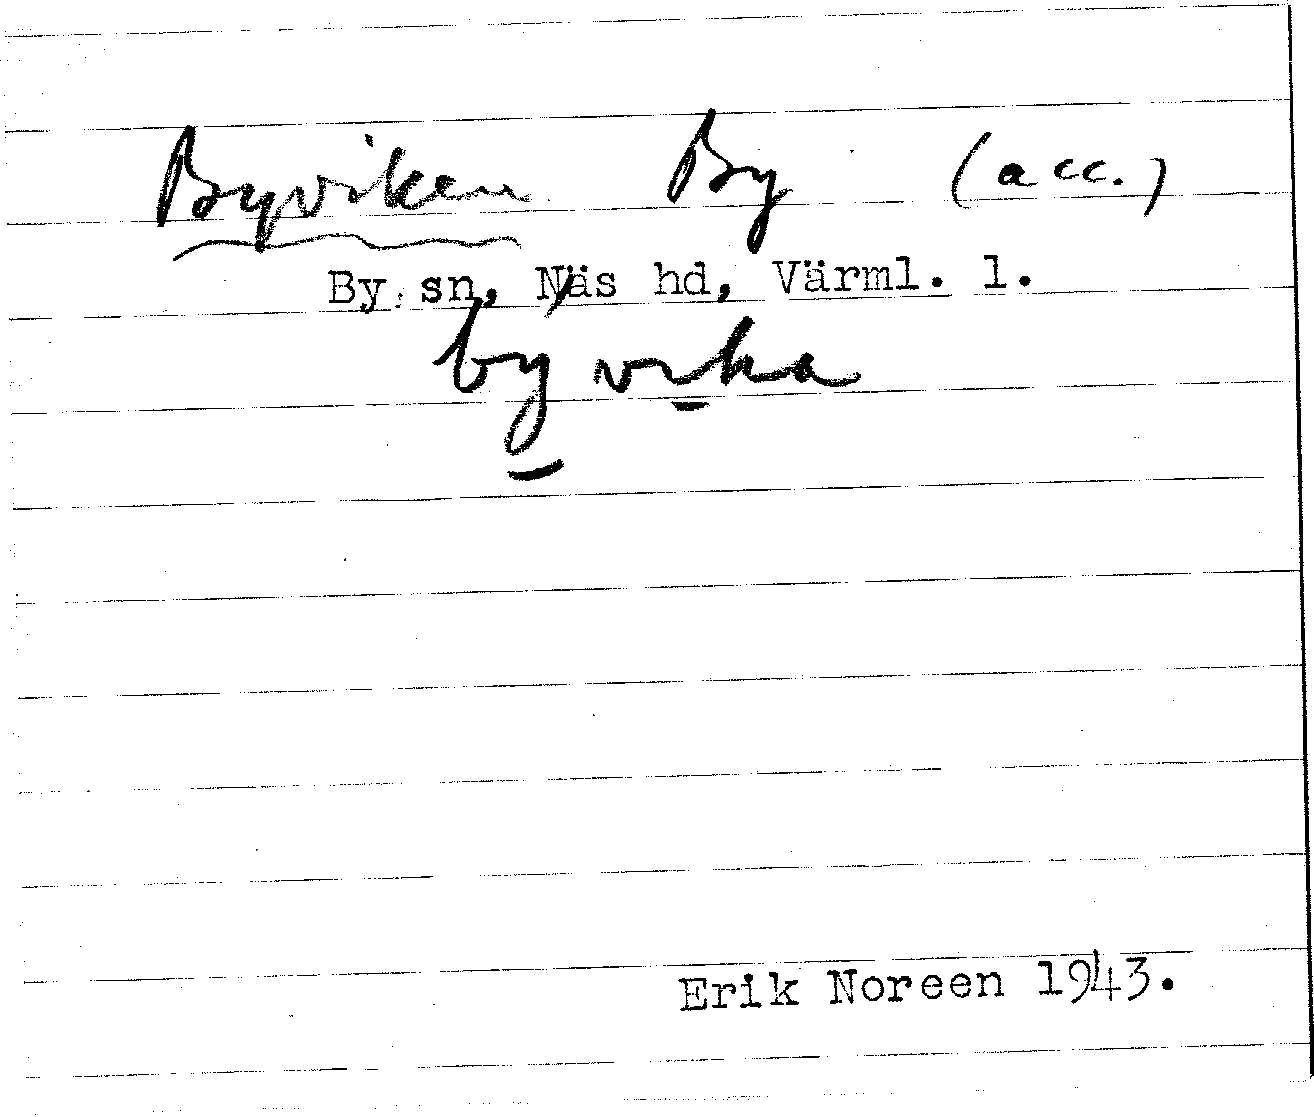 Byviken By (acc.)
By sn, Näs hd, Värml. l.
by vika
Erik Noreen 1943.